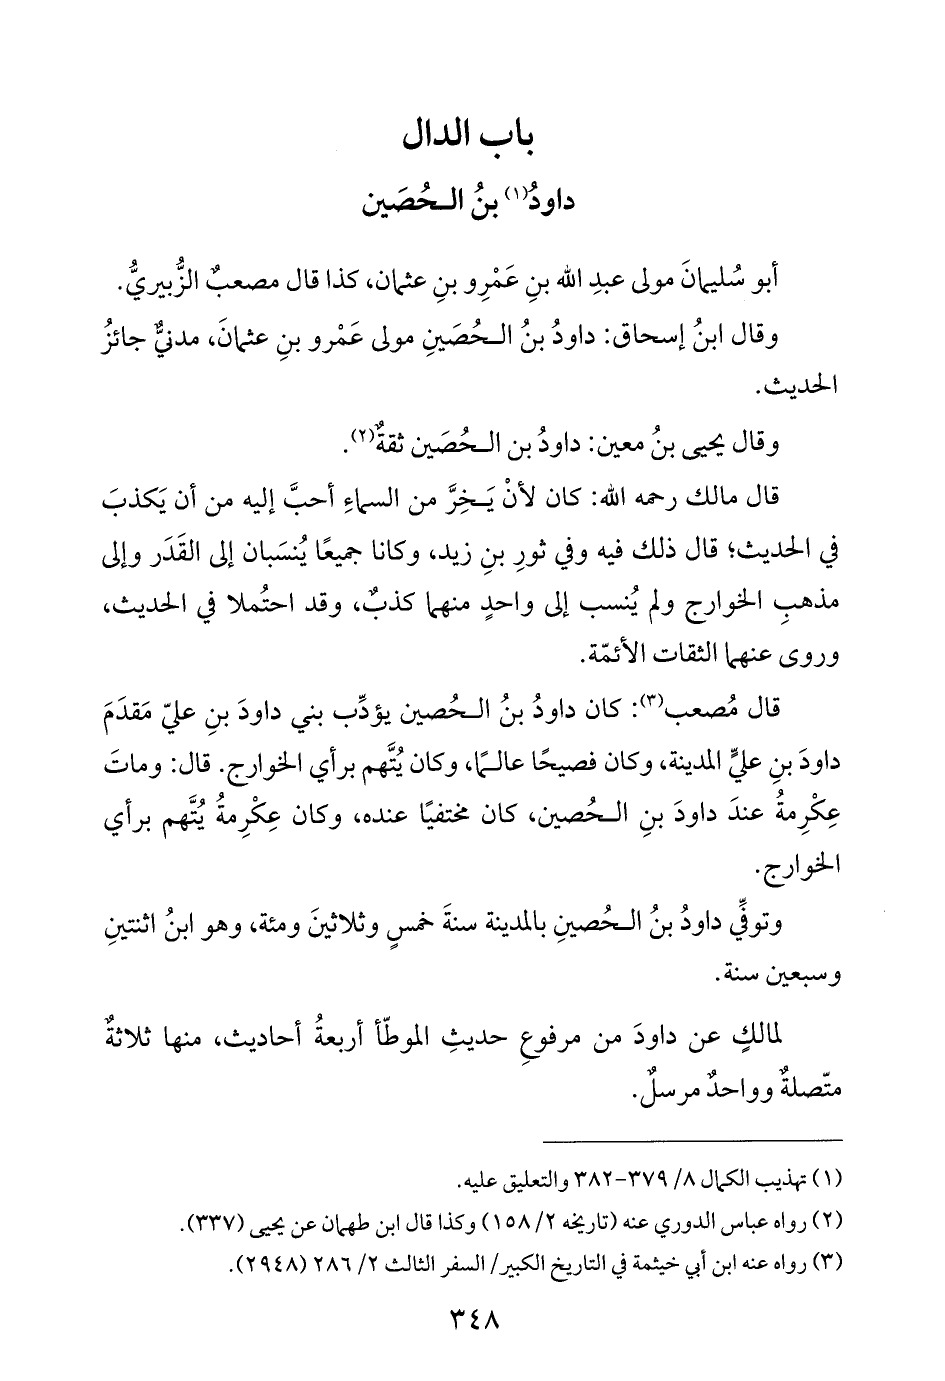 باب الدال
داودُ(١) بنُ الـحُصَين
أبو سُليمانَ مولى عبدِ الله بنِ عَمْرِو بنِ عثمان، كذا قال مصعبٌ الزُّبيريُّ.
وقال ابنُ إسحاق: داودُ بنُ الـحُصَينِ مولى عَمْرو بنِ عثمانَ، مدنيٌّ جائزُ
الحديث.
وقال يحيى بنُ معين: داودُ بن الـحُصَين ثقةٌ(٢).
قال مالك رحمه الله: كان لأنْ يَـخِرَّ من السماءِ أحبَّ إليه من أن يَكذبَ
في الحديث؛ قال ذلك فيه وفي ثورِ بنِ زيد، وكانا جميعًا يُنسَبان إلى القَدَر وإلى
مذهبِ الخوارج ولم يُنسب إلى واحدٍ منهما كذبٌ، وقد احتُملا في الحديث،
وروى عنهما الثقات الأئمّة.
قال مُصعب(٣): كان داودُ بنُ الـحُصين يؤدِّب بني داودَ بنِ عليّ مَقدَمَ
داودَ بنِ عليٍّ المدينة، وكان فصيحًا عالـمًا، وكان يُتَّهم برأي الخوارج. قال: وماتَ
عِكْرِمةُ عندَ داودَ بنِ الـحُصين، كان مختفيًا عنده، وكان عِكْرِمةُ يُتَّهم برأي
الخوارج.
وتوفِّي داودُ بنُ الـحُصينِ بالمدينة سنةَ خمسٍ وثلاثينَ ومئة، وهو ابنُ اثنتينِ
وسبعين سنة.
لمالكٍ عن داودَ من مرفوعِ حديثِ الموطّأ أربعةُ أحاديث، منها ثلاثةٌ
متّصلةٌ وواحدٌ مرسلٌ.
(١) تهذيب الكمال ٨/ ٣٧٩-٣٨٢ والتعليق عليه.
(٢) رواه عباس الدوري عنه (تاريخه ٢/ ١٥٨) وكذا قال ابن طهمان عن يحيى (٣٣٧).
(٣) رواه عنه ابن أبي خيثمة في التاريخ الكبير/ السفر الثالث ٢/ ٢٨٦ (٢٩٤٨).
٣٤٨